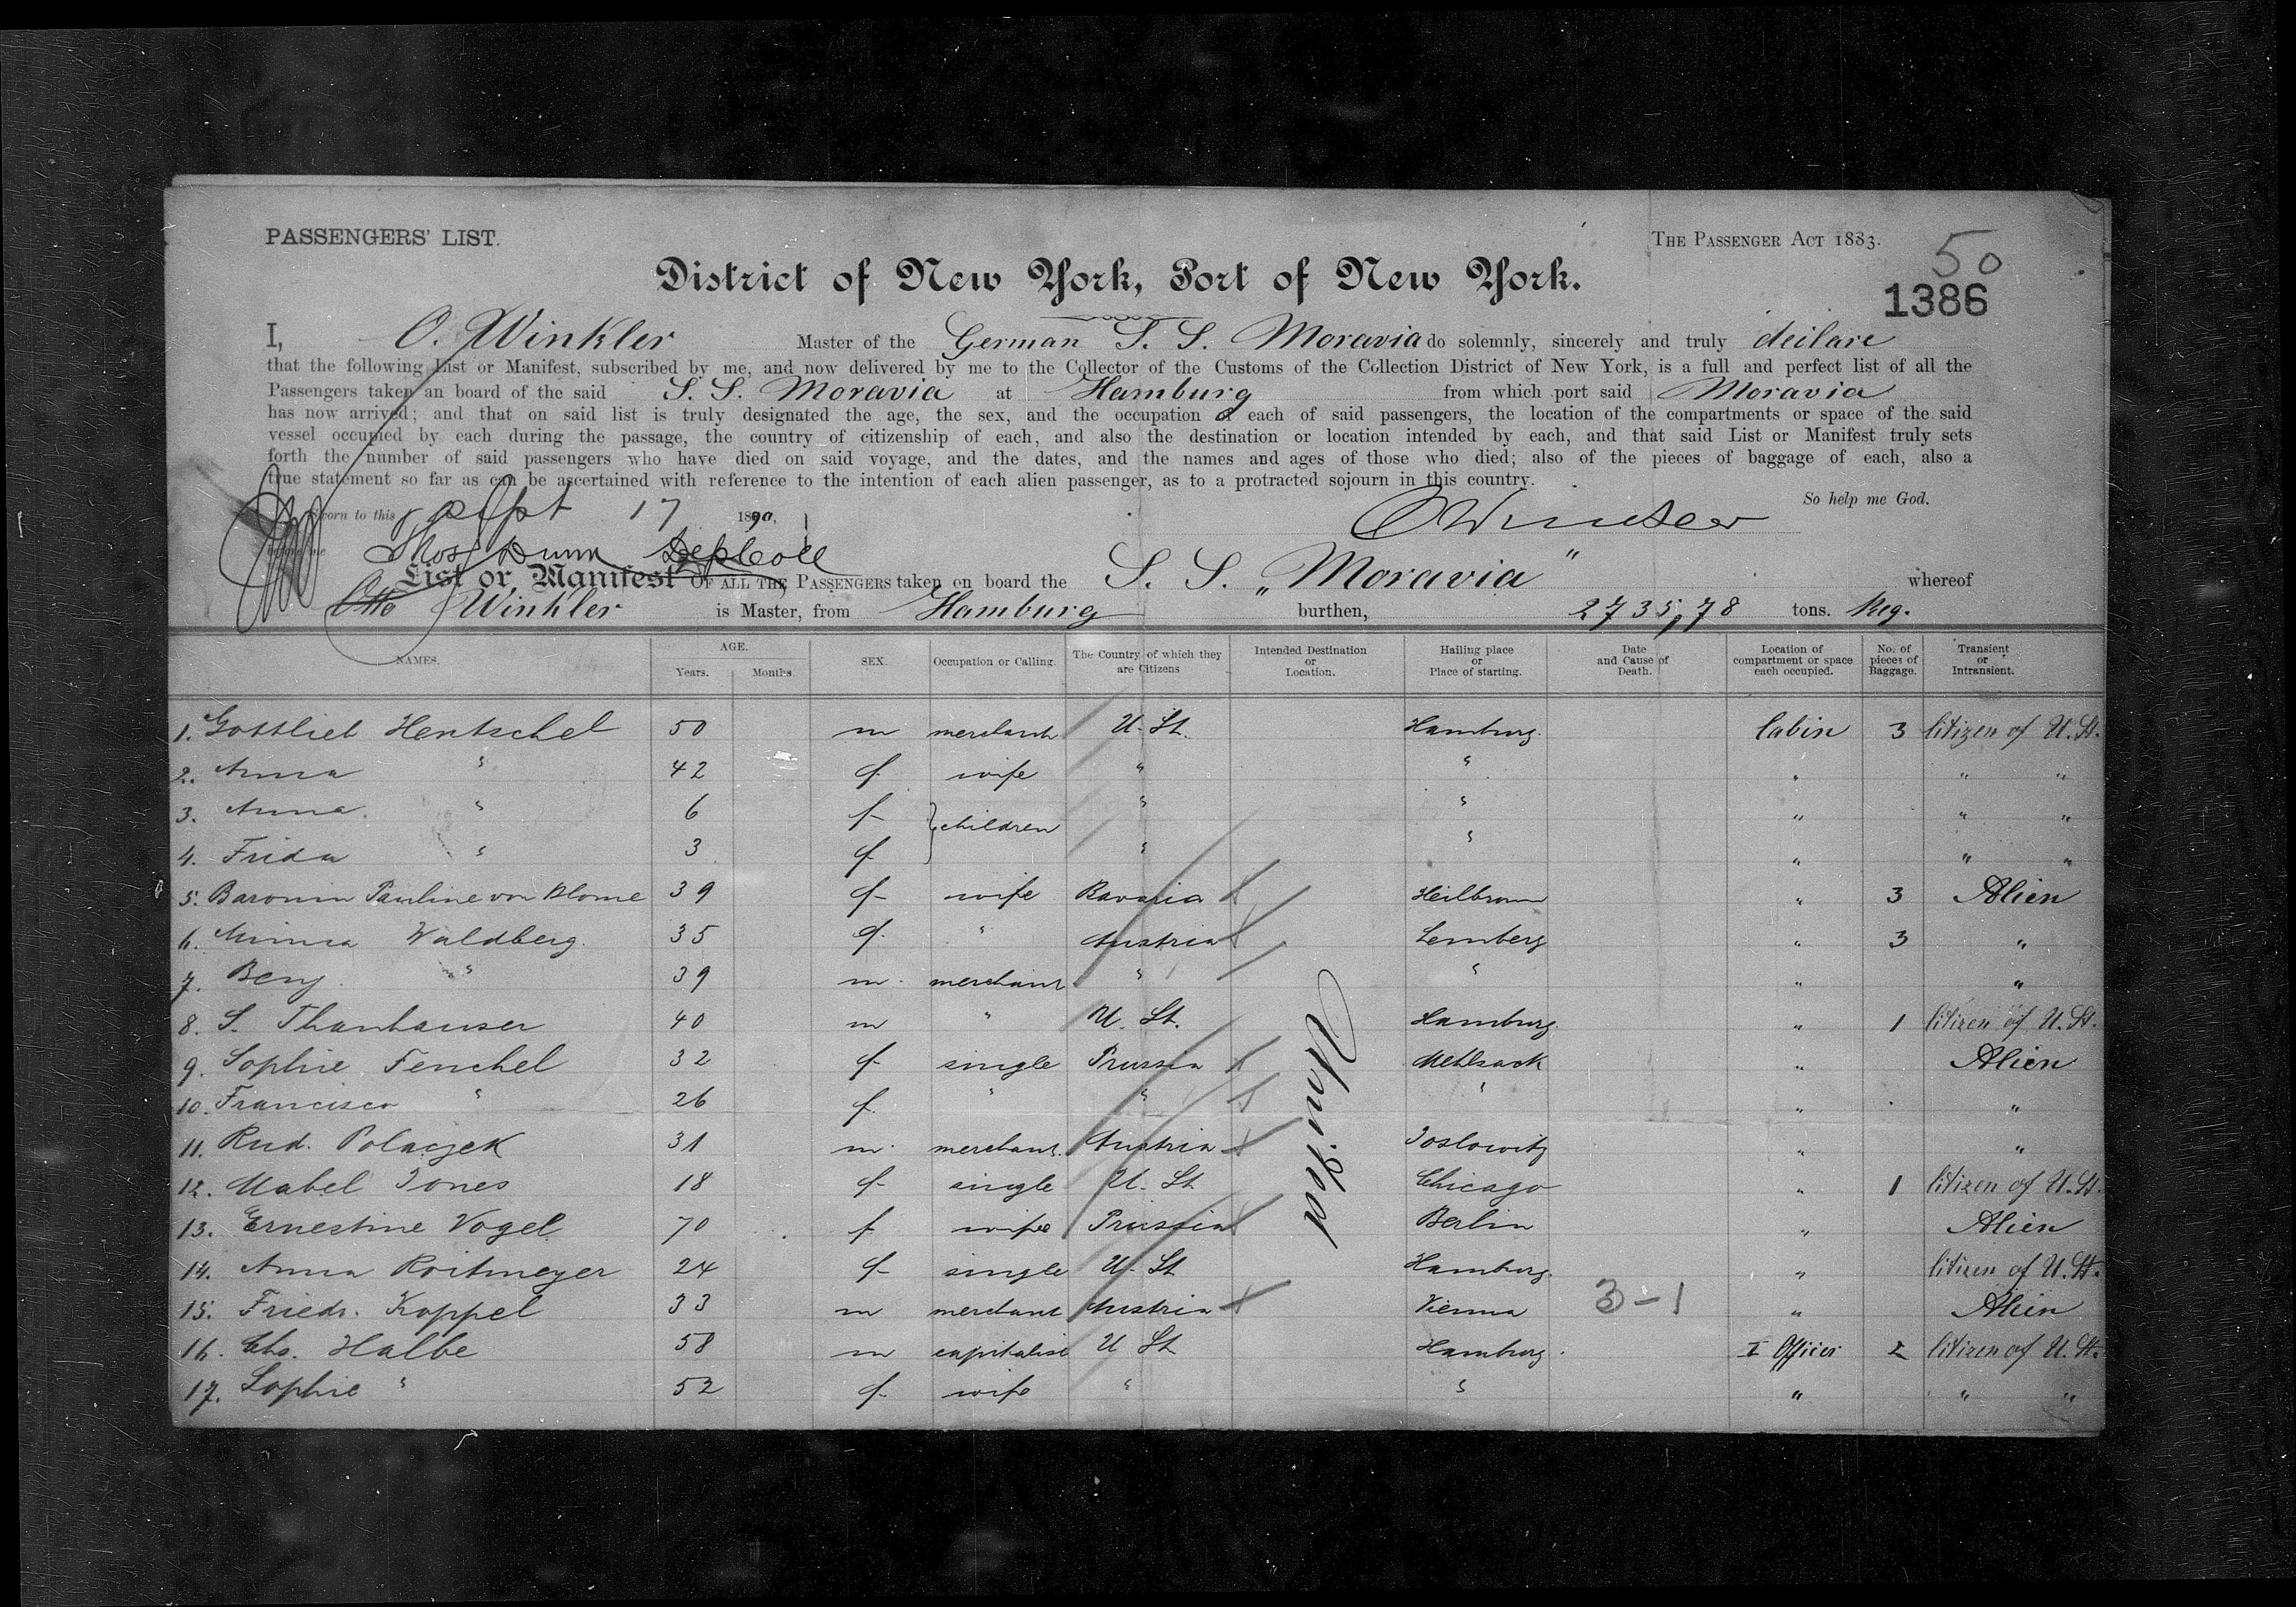 PASSENGERS' LIST.
THE PASSENGER ACT 1883.
50
District of New York, Port of New York.
1386
I, O. Winkler Master of the German S. S. Moravia do solemnly, sincerely and truly declare
that the following List or Manifest, subscribed by me, and now delivered by me to the Collector of the Customs of the Collection District of New York, is a full and perfect list of all the
Passengers taken an board of the said S. S. Moravia at Hamburg from which port said Moravia
has now arrived; and that on said list is truly designated the age, the sex, and the occupation of each of said passengers, the location of the compartments or space of the said
vessel occupied by each during the passage, the country of citizenship of each, and also the destination or location intended by each, and that said List or Manifest truly sets
forth the number of said passengers who have died on said voyage, and the dates, and the names and ages of those who died; also of the pieces of baggage of each, also a
true statement so far as can be ascertained with reference to the intention of each alien passenger, as to a protracted sojourn in this country.
So help me God.
Sworn to this Sept 17 1890,
before me Thos Dunn Dep Coll
List or Manifest OF ALL THE PASSENGERS taken on board the S. S. „Moravia" whereof
Otto Winkler is Master, from Hamburg burthen, 2735,78 tons. Reg.
NAMES. AGE. Years. Months. SEX. Occupation or Calling. The Country of which they are Citizens Intended Destination or Location. Hailing place or Place of starting. Date and Cause of Death. Location of compartment or space each occupied. No. of pieces of Baggage. Transient or Intransient.
1. Gottlieb Hentschel 50 m merchant U. St. Hamburg. Cabin 3 Citizen of U. St.
2. Anna " 42 f wife " " " " "
3. Anna " 6 f } children " " " " "
4. Frida " 3 f " " " " "
5. Baronin Pauline von Blome 39 f wife Bavaria Heilbronn " 3 Alien
6. Minna Waldberg. 35 f " Austria Lemberg " 3 "
7. Benj. " 39 m merchant " " " "
8. S. Thanhauser 40 m " U. St. Hamburg " 1 Citizen of U. St.
9. Sophie Fenchel 32 f single Prussia Mehlsack " Alien
10. Francisca " 26 f " " " " "
11. Rud. Polaczek 31 m merchant. Austria Joslowitz " "
12. Mabel Jones 18 f single U. St Chicago " 1 Citizen of U. St.
13. Ernestine Vogel 70 f wife Prussia Berlin " Alien
14. Anna Roitmeyer 24 f single U. St Hamburg. " Citizen of U. St.
15. Friedr. Koppel 33 m merchant Austria Vienna 3-1 " Alien
16. Chs. Halbe 58 m capitalist U St Hamburg. I Officer 2 Citizen of U. St.
17. Sophie " 52 f wife " " " " "